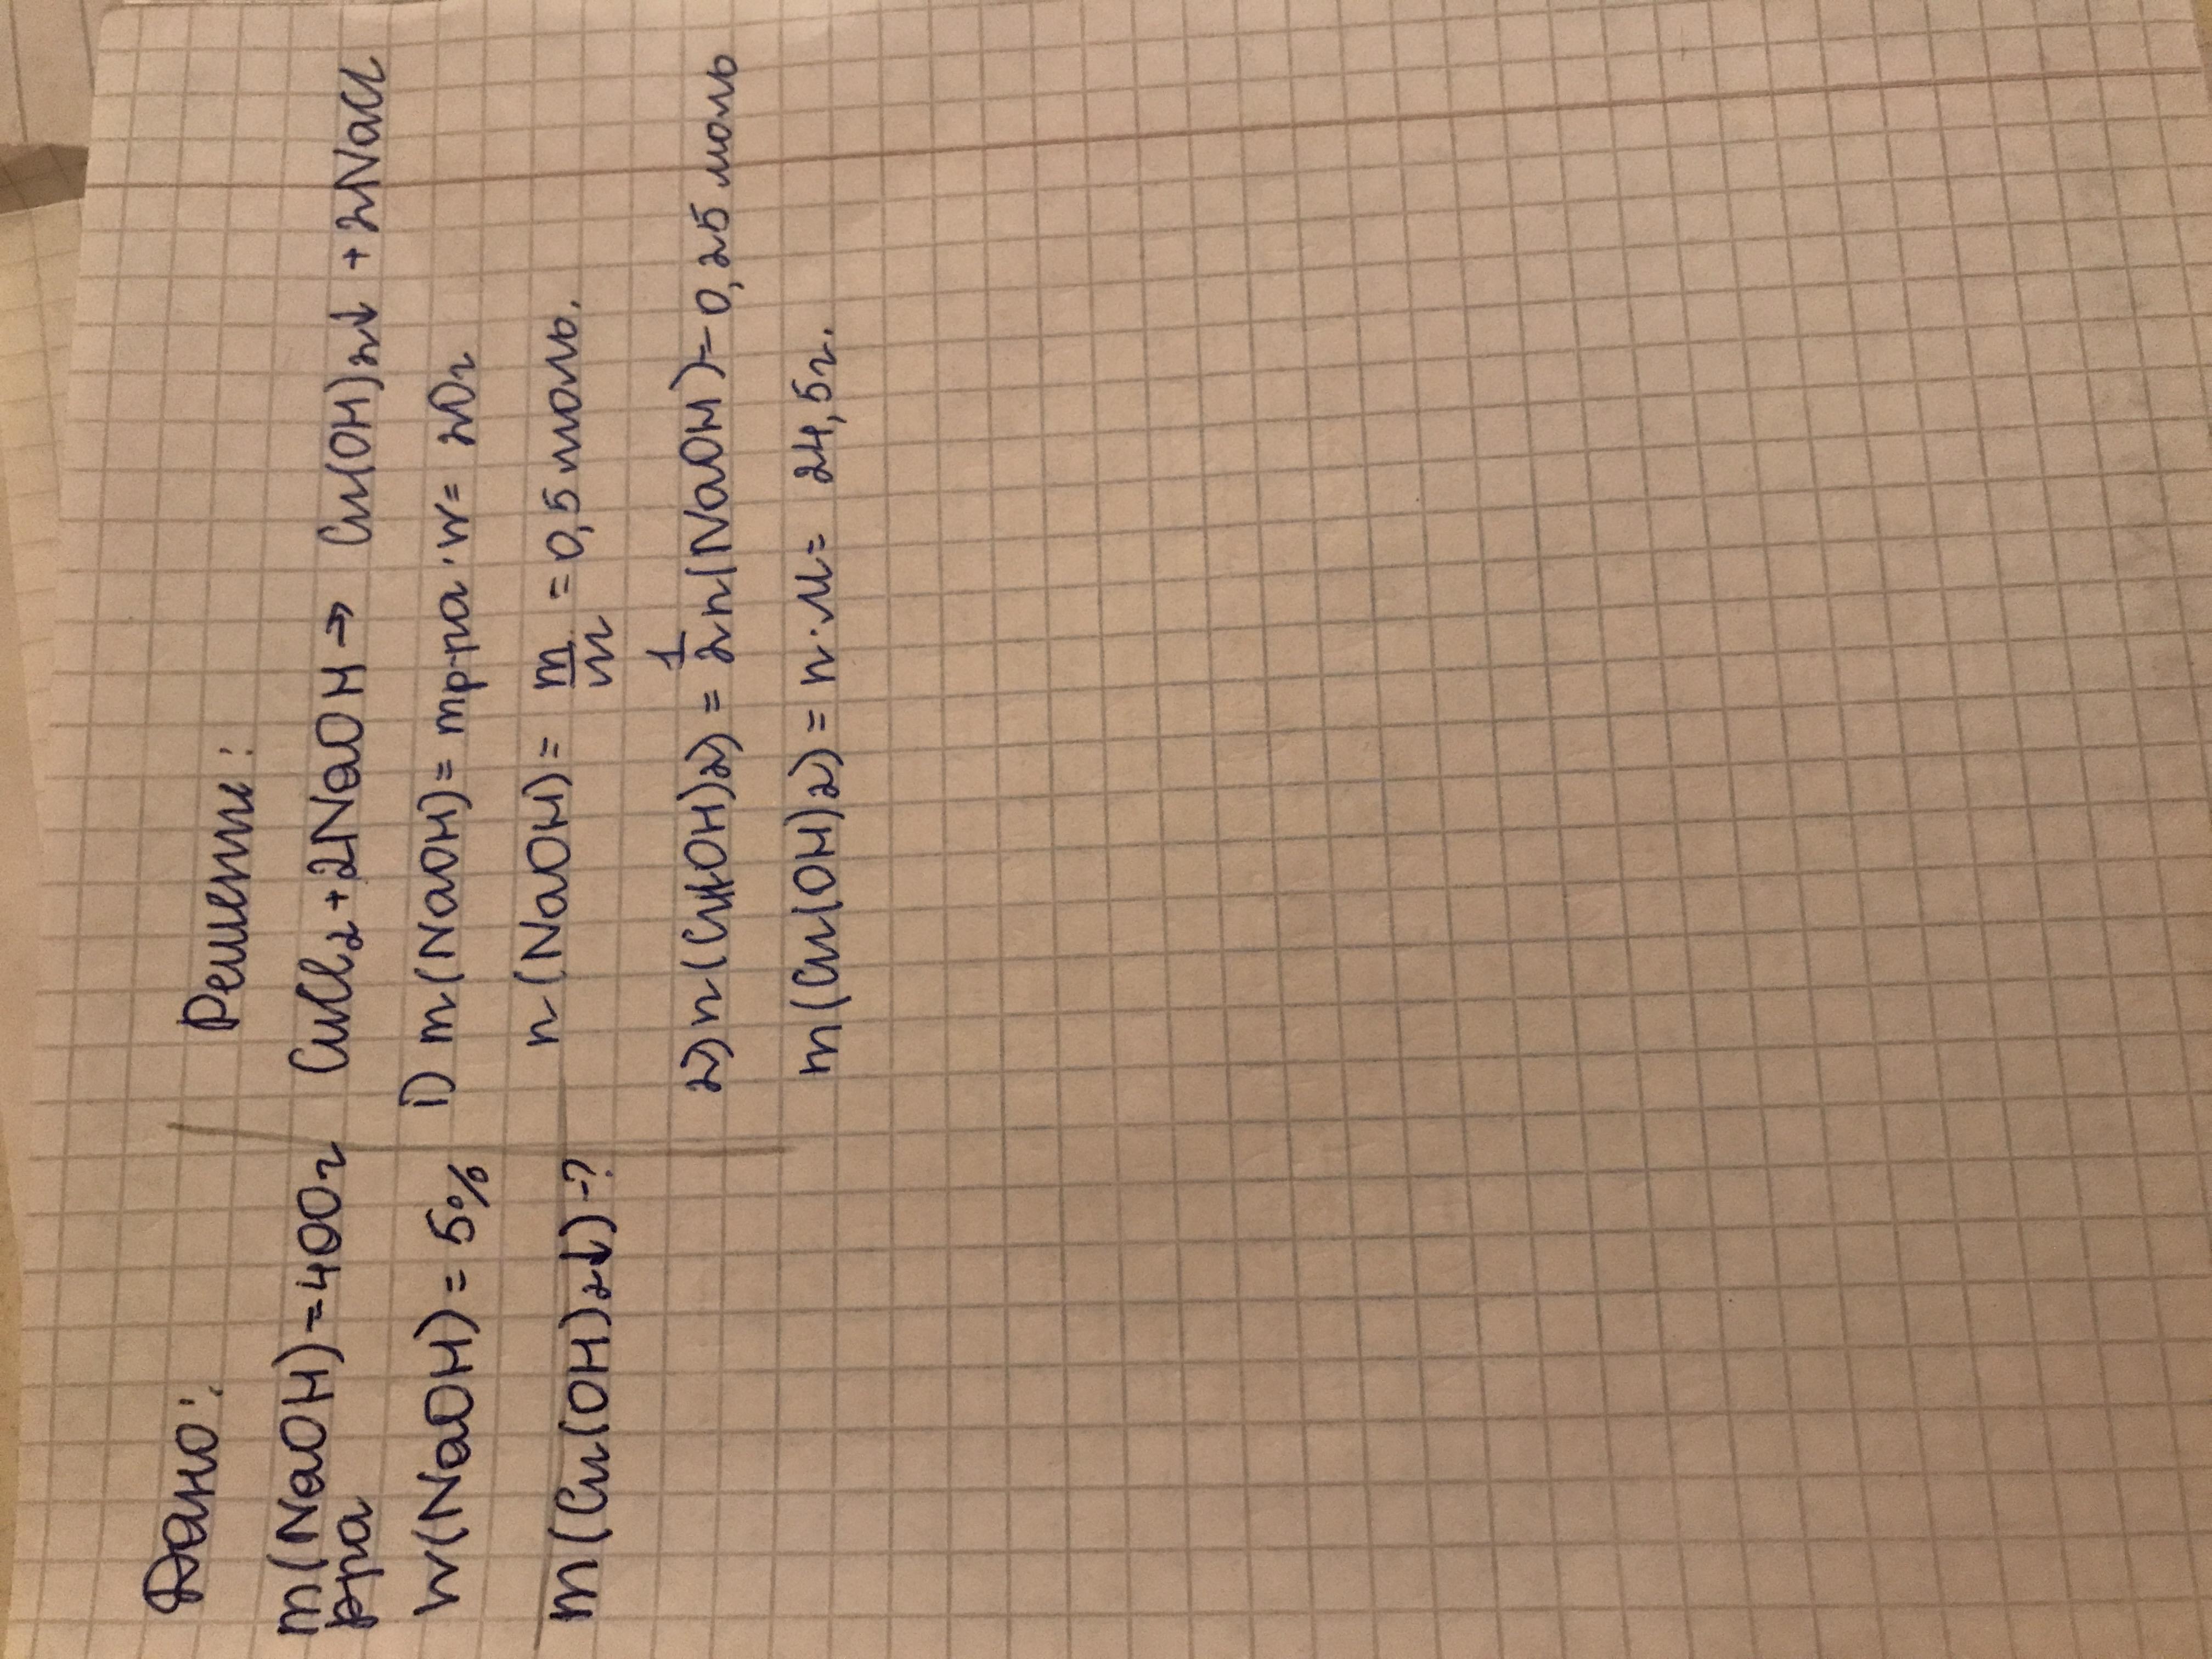 Дано:
m(NaOH)=400г
р-ра
w(NaOH)=5%
m(Cu(OH)2↓)-?
Решение:
CuCl2+2NaOH→ Cu(OH)2↓ +2NaCl
1) m(NaOH)= mр-ра·w= 20г
n(NaOH)= m/M = 0,5 моль.
2) n(Cu(OH)2)= 1/2 n(NaOH)=0,25 моль
m(Cu(OH)2)= n·M= 24,5г.